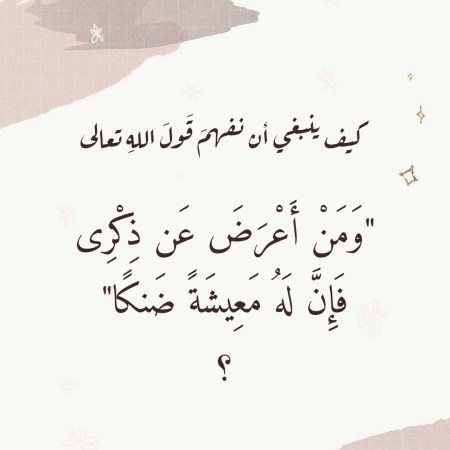 كيف ينبغي أن نفهمَ قَولَ اللهِ تعالى
"وَمَنْ أَعْرَضَ عَن ذِكْرِى
فَإِنَّ لَهُ مَعِيشَةً ضَنكًا"
؟